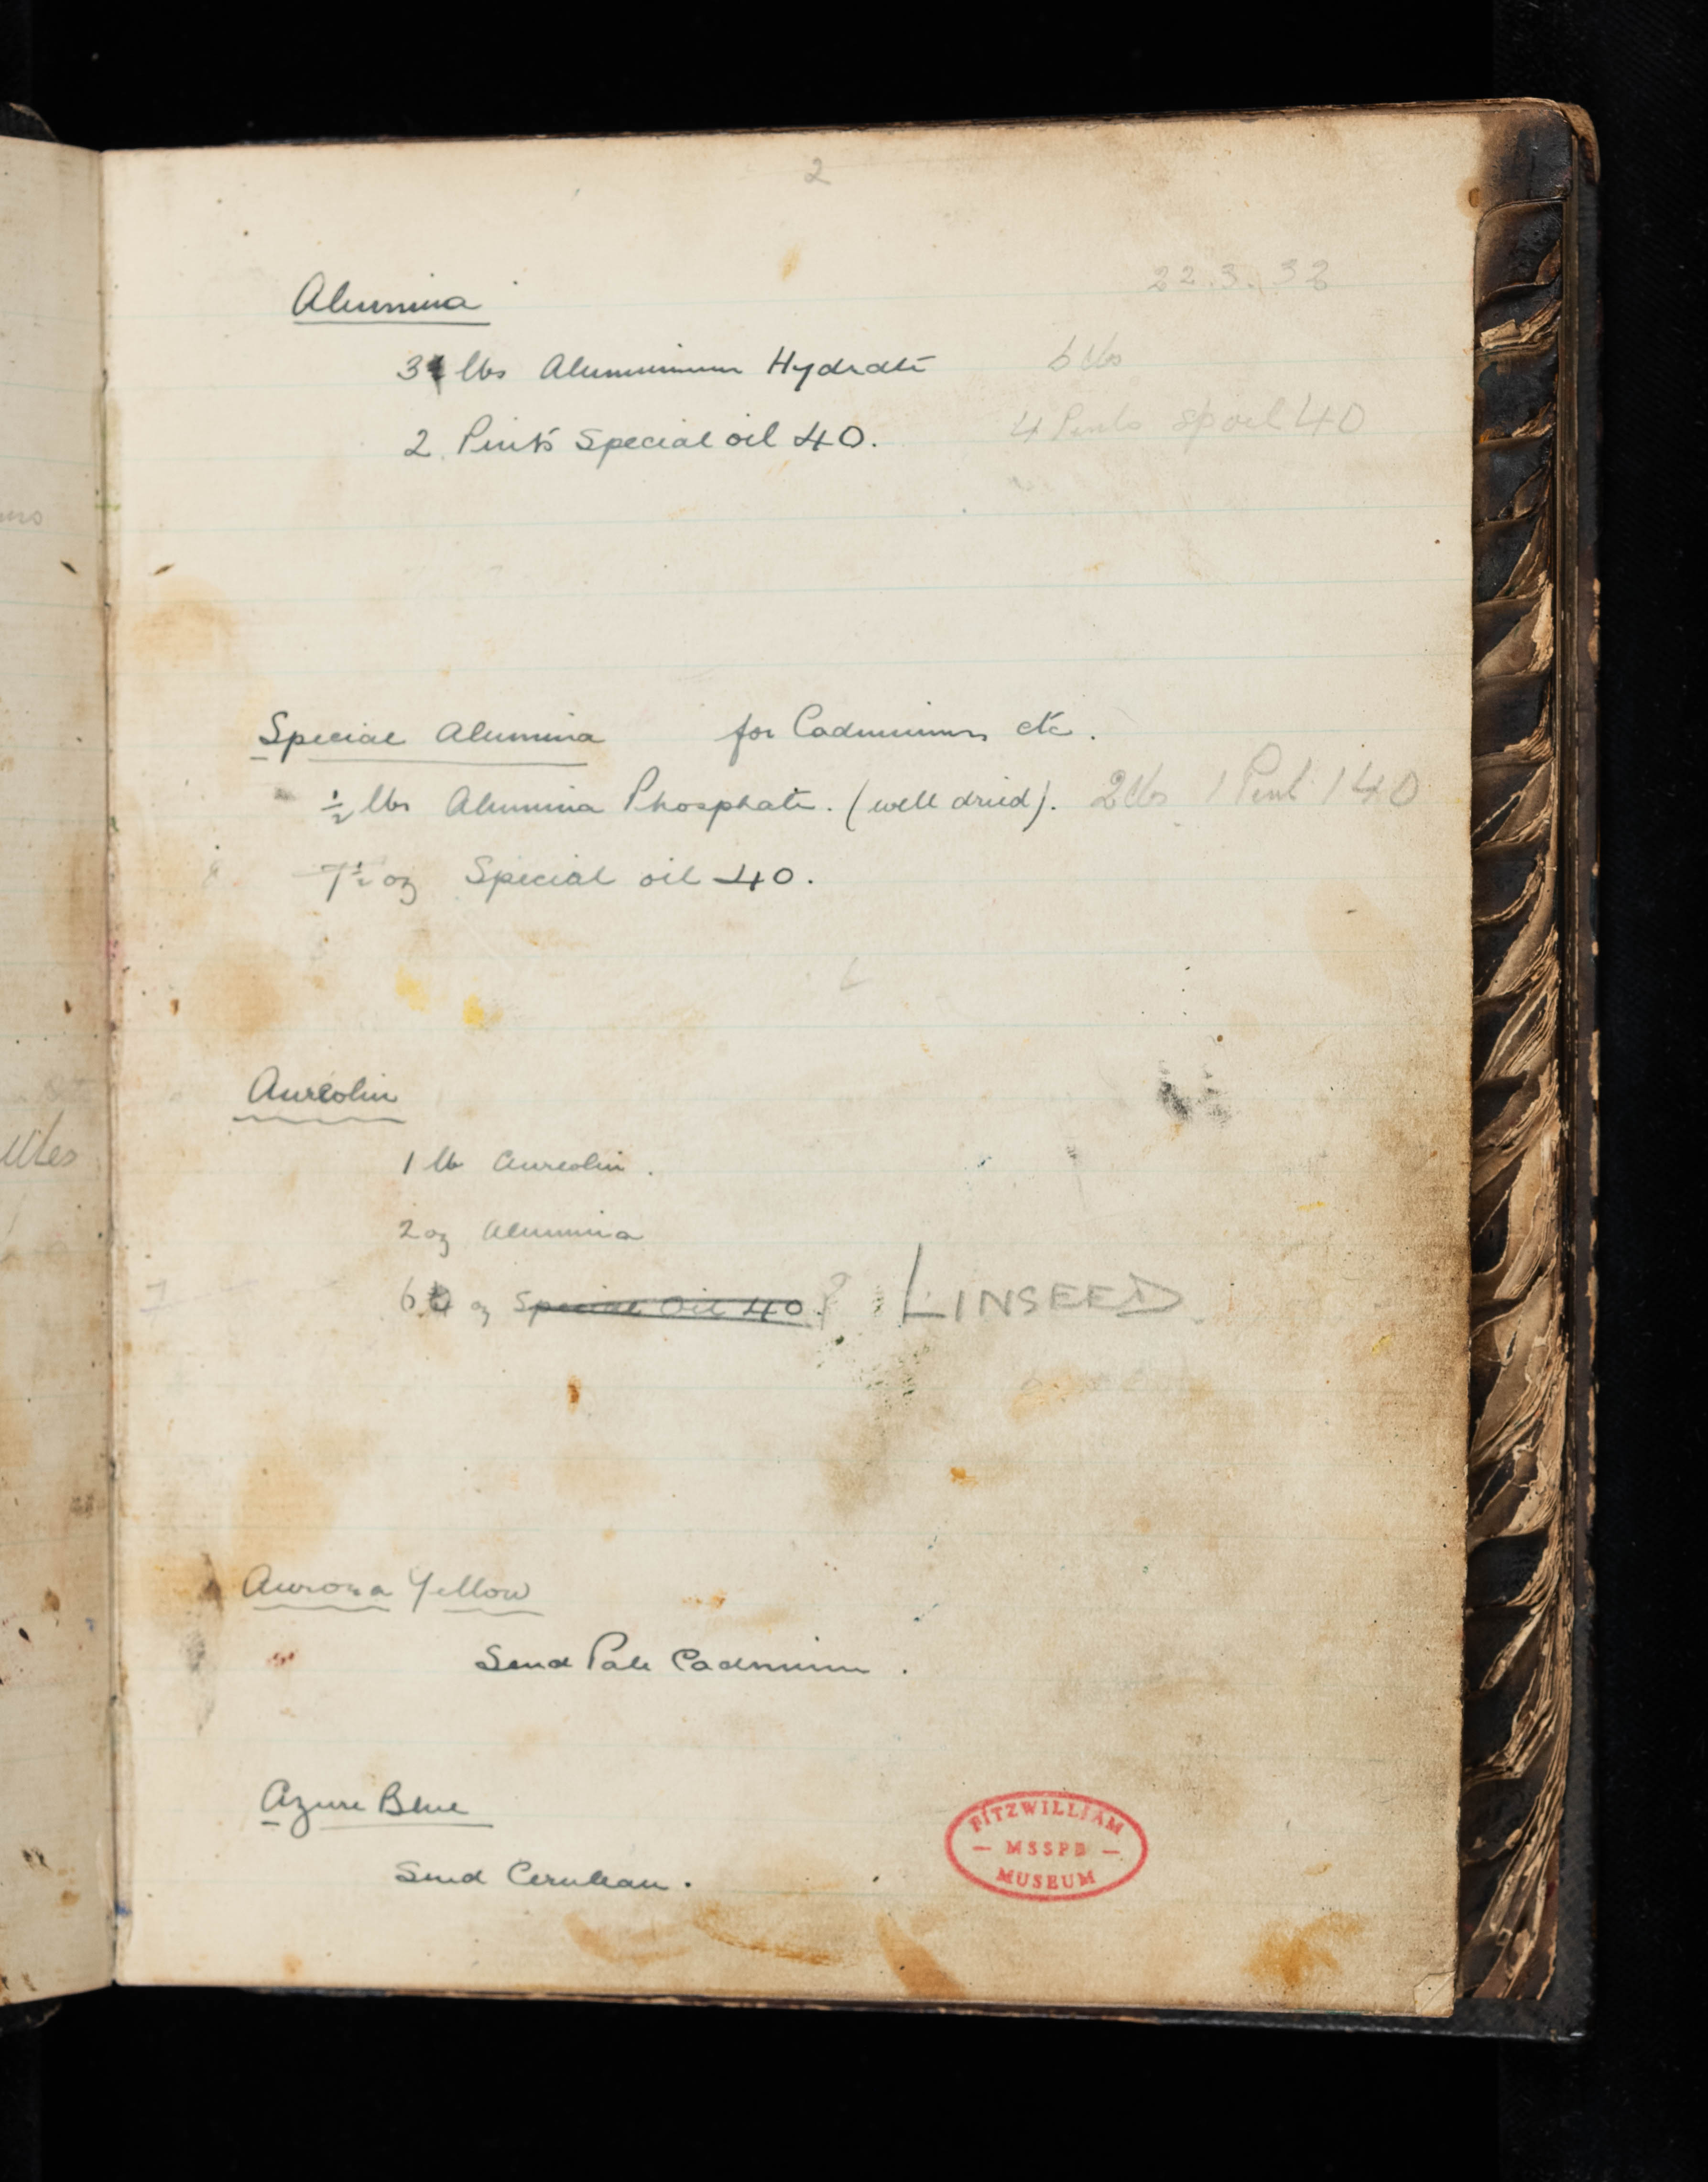 2
22.3.33
Alumina
3 lbs Aluminium Hydrate 6 lbs
2 Pints Special oil 40. 4 Pints sp oil 40
Special Alumina for Cadmiums etc.
½ lbs Alumina Phosphate. (well dried). 2 lbs 1 Pint 140
7½ oz Special oil 40.
Aureolin
1 lb Aureolin.
2 oz Alumina
6 oz Special Oil 40.? LINSEED
Aurora Yellow
Send Pale Cadmium.
Azure Blue
Send Cerulean.
FITZWILLIAM
— MSSPB —
MUSEUM